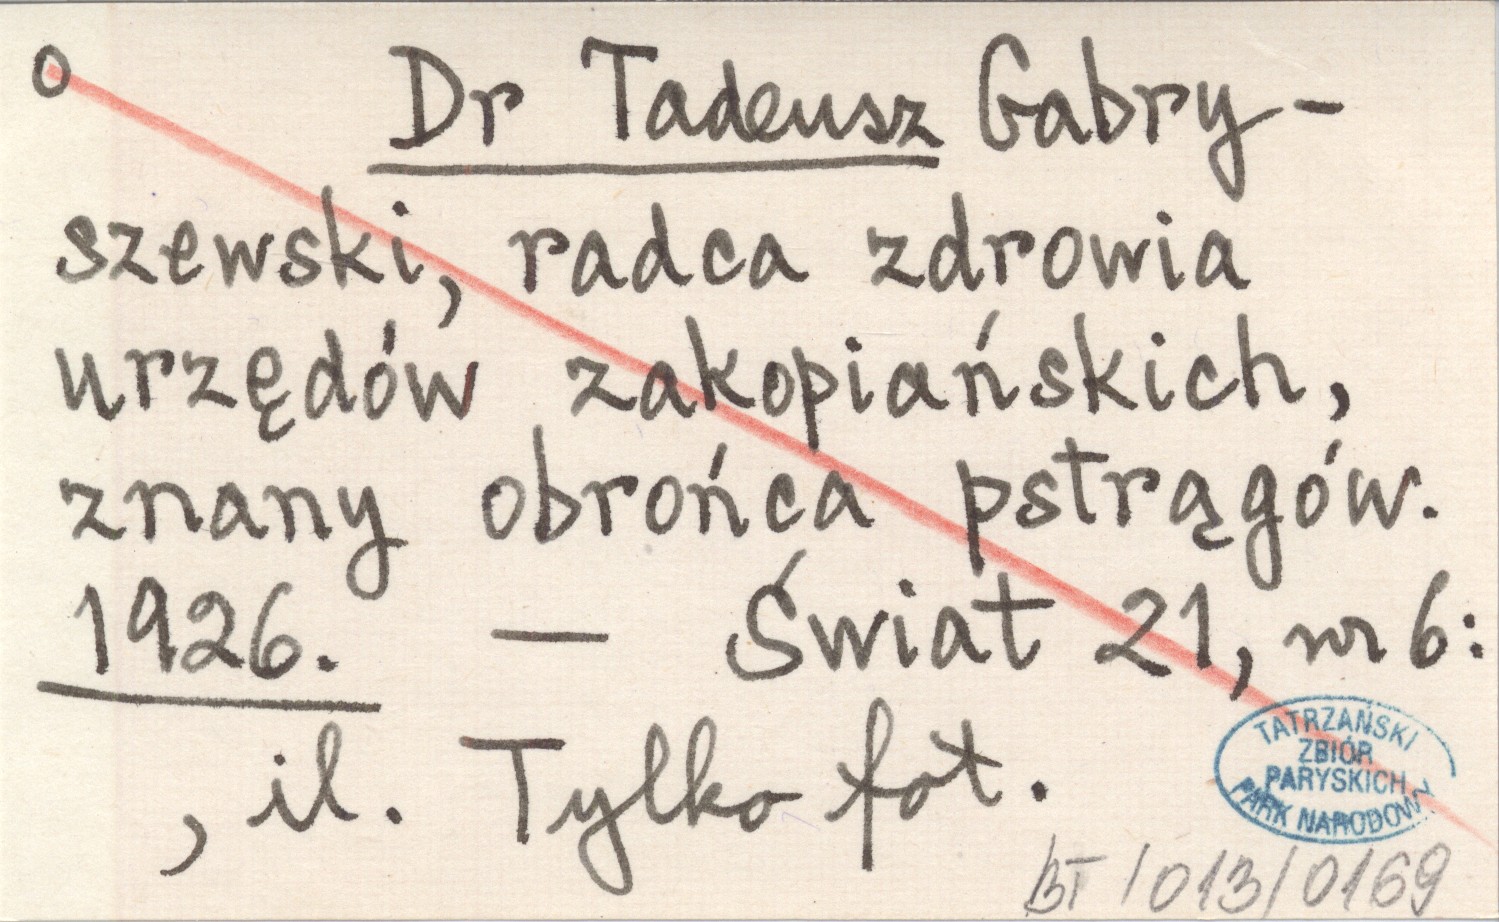 o Dr Tadeusz Gabry-
szewski, radca zdrowia
urzędów zakopiańskich,
znany obrońca pstrągów.
1926. — Świat 21, nr 6:
, il. Tylko fot.
TATRZAŃSKI
ZBIÓR
PARYSKICH
PARK NARODOWY
BT/013/0169